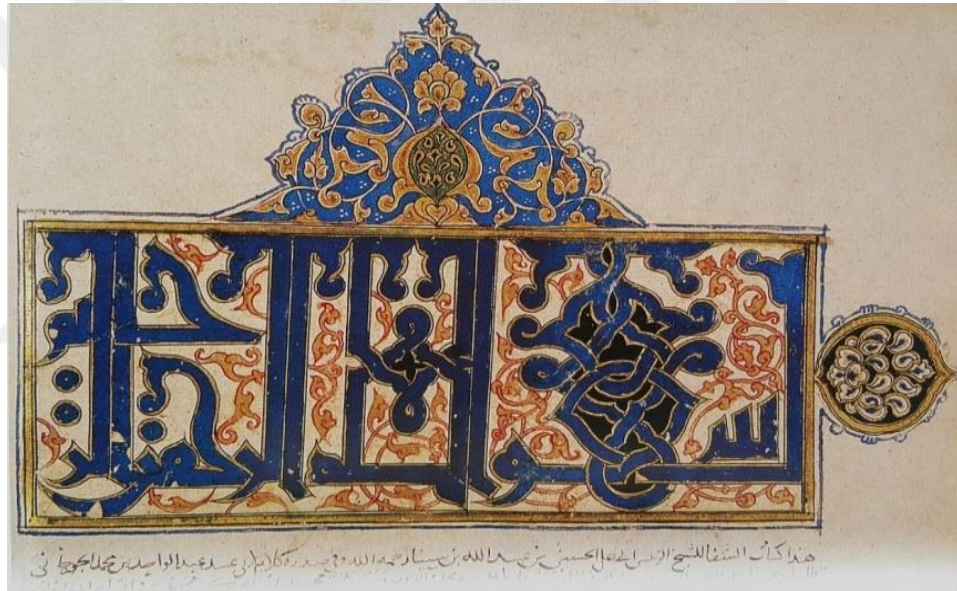 بسم الله الرحمن الرحيم
هذا كتاب الشفا للشيخ الرئيس ابي علي الحسين بن عبد الله بن سينا رحمه الله وفي صدره كلام لابي عبيد عبد الواحد بن محمد الجوزجاني